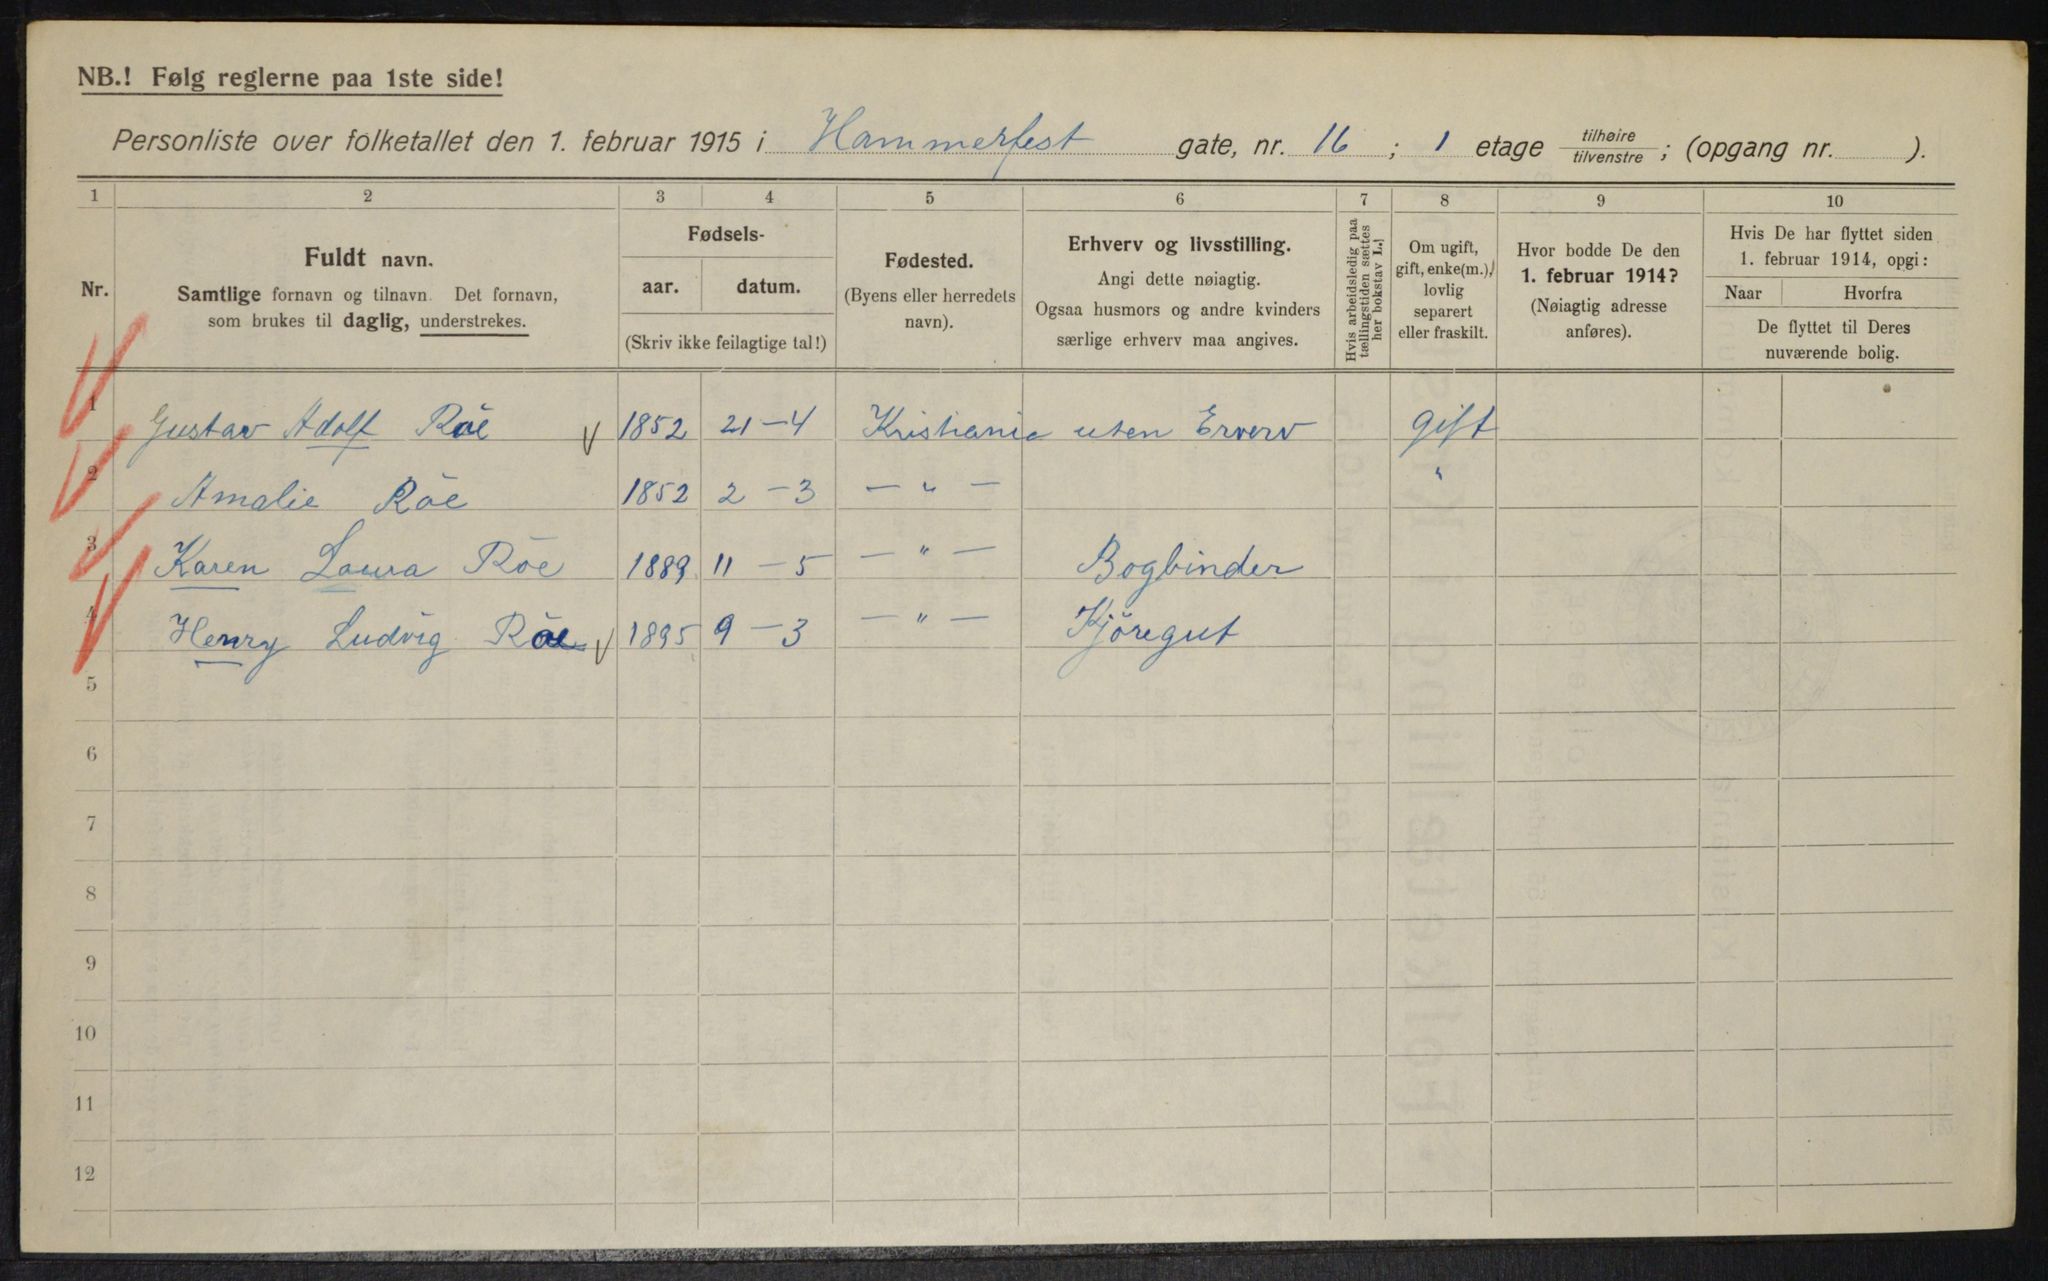 NB.! Følg reglerne paa 1ste side!
Personliste over folketallet den 1. februar 1915 i Hammerfest gate, nr. 16 ; 1 etage tilhøire/tilvenstre ; (opgang nr. ).
1 2 3 4 5 6 7 8 9 10
Nr.
Fuldt navn.
Samtlige fornavn og tilnavn. Det fornavn,
som brukes til daglig, understrekes.
Fødsels-
aar. datum.
(Skriv ikke feilagtige tal!)
Fødested.
(Byens eller herredets
navn).
Erhverv og livsstilling.
Angi dette nøiagtig.
Ogsaa husmors og andre kvinders
særlige erhverv maa angives.
Hvis arbeidsledig paa
tællingstiden sættes
her bokstav L.)
Om ugift,
gift, enke(m.),
lovlig
separert
eller fraskilt.
Hvor bodde De den
1. februar 1914?
(Nøiagtig adresse
anføres).
Hvis De har flyttet siden
1. februar 1914, opgi:
Naar Hvorfra
De flyttet til Deres
nuværende bolig.
1 Gustav Adolf Röe 1852 21-4 Kristiania uten Erverv gift
2 Amalie Röe 1852 2-3 — " — "
3 Karen Laura Röe 1889 11-5 — " — Bogbinder
4 Henry Ludvig Röe 1895 9-3 — " — Kjöregut
5
6
7
8
9
10
11
12